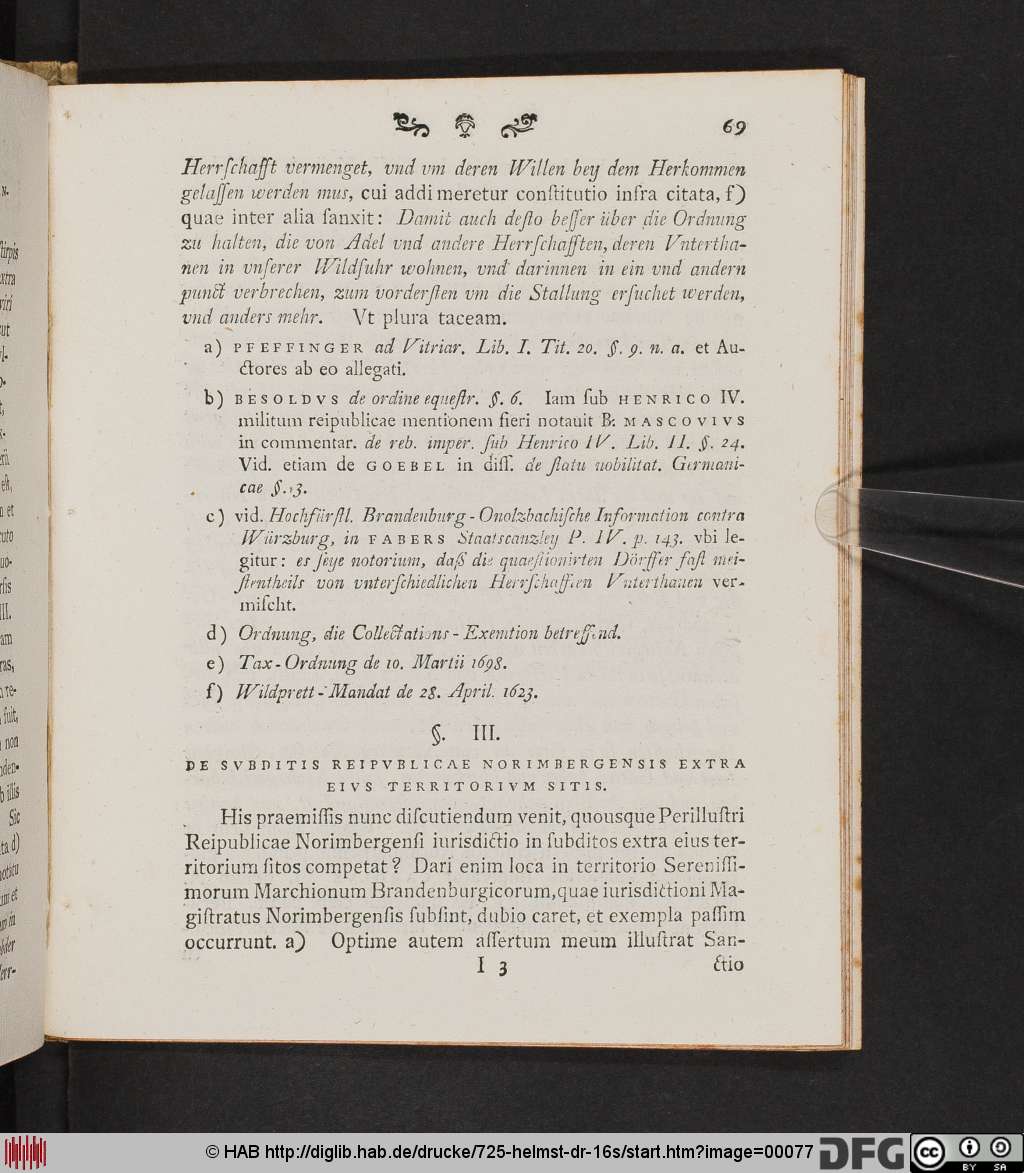 69
Herrſchafft vermenget, vnd vm deren Willen bey dem Herkommen
gelaſſen werden mus, cui addi meretur conſtitutio infra citata, f)
quae inter alia ſanxit: Damit auch deſto beſſer über die Ordnung
zu halten, die von Adel vnd andere Herrſchafften, deren Vntertha-
nen in vnſerer Wildfuhr wohnen, vnd darinnen in ein vnd andern
punct verbrechen, zum vorderſten vm die Stallung erſuchet werden,
vnd anders mehr. Vt plura taceam.
a) PFEFFINGER ad Vitriar. Lib. I. Tit. 20. §. 9. n. a. et Au-
ctores ab eo allegati.
b) BESOLDVS de ordine equeſtr. §. 6. Iam ſub HENRICO IV.
militum reipublicae mentionem fieri notauit B. MASCOVIVS
in commentar. de reb. imper. ſub Henrico IV. Lib. II. §. 24.
Vid. etiam de GOEBEL in diſſ. de ſtatu nobilitat. Germani-
cae §. 13.
c) vid. Hochfürſtl. Brandenburg-Onolzbachiſche Information contra
Würzburg, in FABERS Staatscanzley P. IV. p. 143. vbi le-
gitur: es ſeye notorium, daß die quaeſtionirten Dörffer faſt mei-
ſtentheils von vnterſchiedlichen Herrſchafften Vnterthanen ver-
miſcht.
d) Ordnung, die Collectations-Exemtion betreffend.
e) Tax-Ordnung de 10. Martii 1698.
f) Wildprett-Mandat de 28. April. 1623.
§. III.
DE SVBDITIS REIPVBLICAE NORIMBERGENSIS EXTRA
EIVS TERRITORIVM SITIS.
His praemiſſis nunc diſcutiendum venit, quousque Perilluſtri
Reipublicae Norimbergenſi iurisdictio in ſubditos extra eius ter-
ritorium ſitos competat? Dari enim loca in territorio Sereniſſi-
morum Marchionum Brandenburgicorum, quae iurisdictioni Ma-
giſtratus Norimbergenſis ſubſint, dubio caret, et exempla paſſim
occurrunt. a) Optime autem aſſertum meum illuſtrat San-
I 3 ctio
© HAB http://diglib.hab.de/drucke/725-helmst-dr-16s/start.htm?image=00077
DFG
cc BY SA